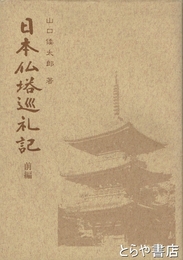 山口偉太郎 著
日本仏塔巡礼記
前編
とらや書店